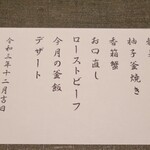 柚子釜焼き
香箱蟹
お口直し
ローストビーフ
今月の釜飯
デザート
令和三年十二月吉日